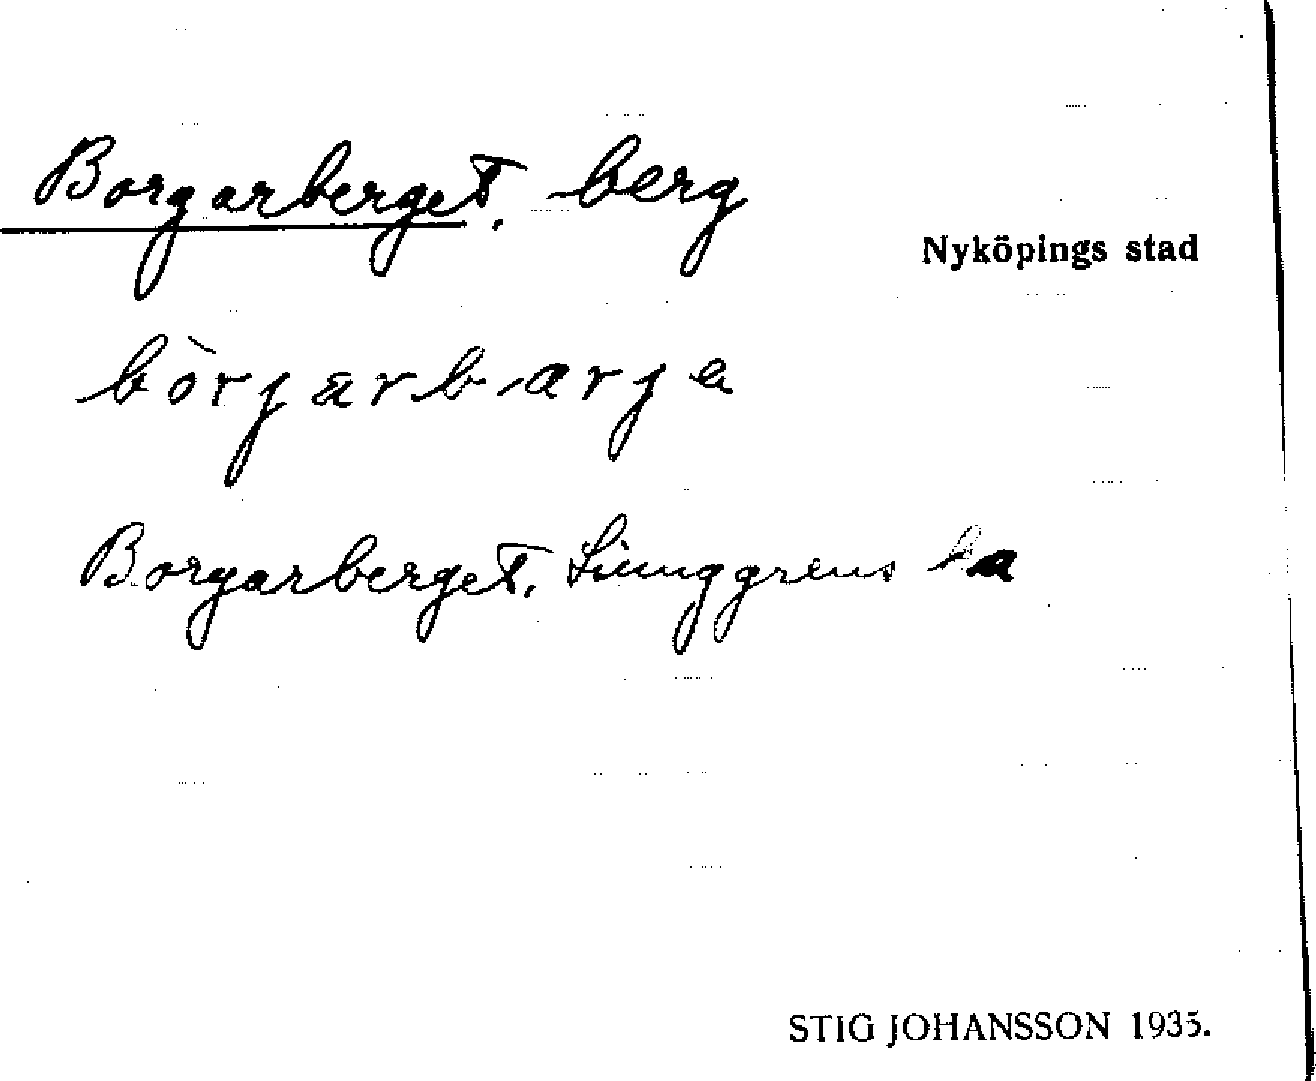 Borgarberget, berg
Nyköpings stad
bòrjarbarje
Borgarberget, Ljunggrens ka
STIG JOHANSSON 1935.